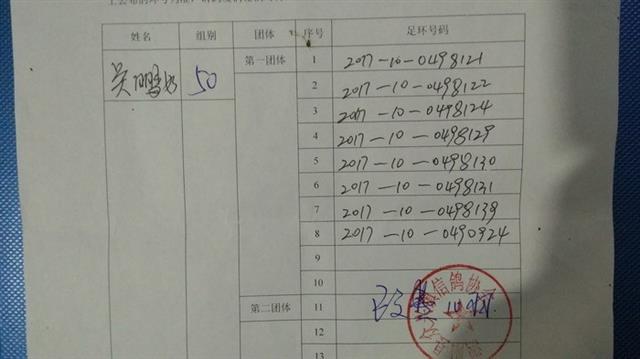 姓名 组别 团体 序号 足环号码
吴 50 第一团体 1 2017-10-0498121
2 2017-10-0498122
3 2017-10-0498124
4 2017-10-0498129
5 2017-10-0498130
6 2017-10-0498131
7 2017-10-0498139
8 2017-10-0490924
9
10
第二团体 11
信鸽协
12
13